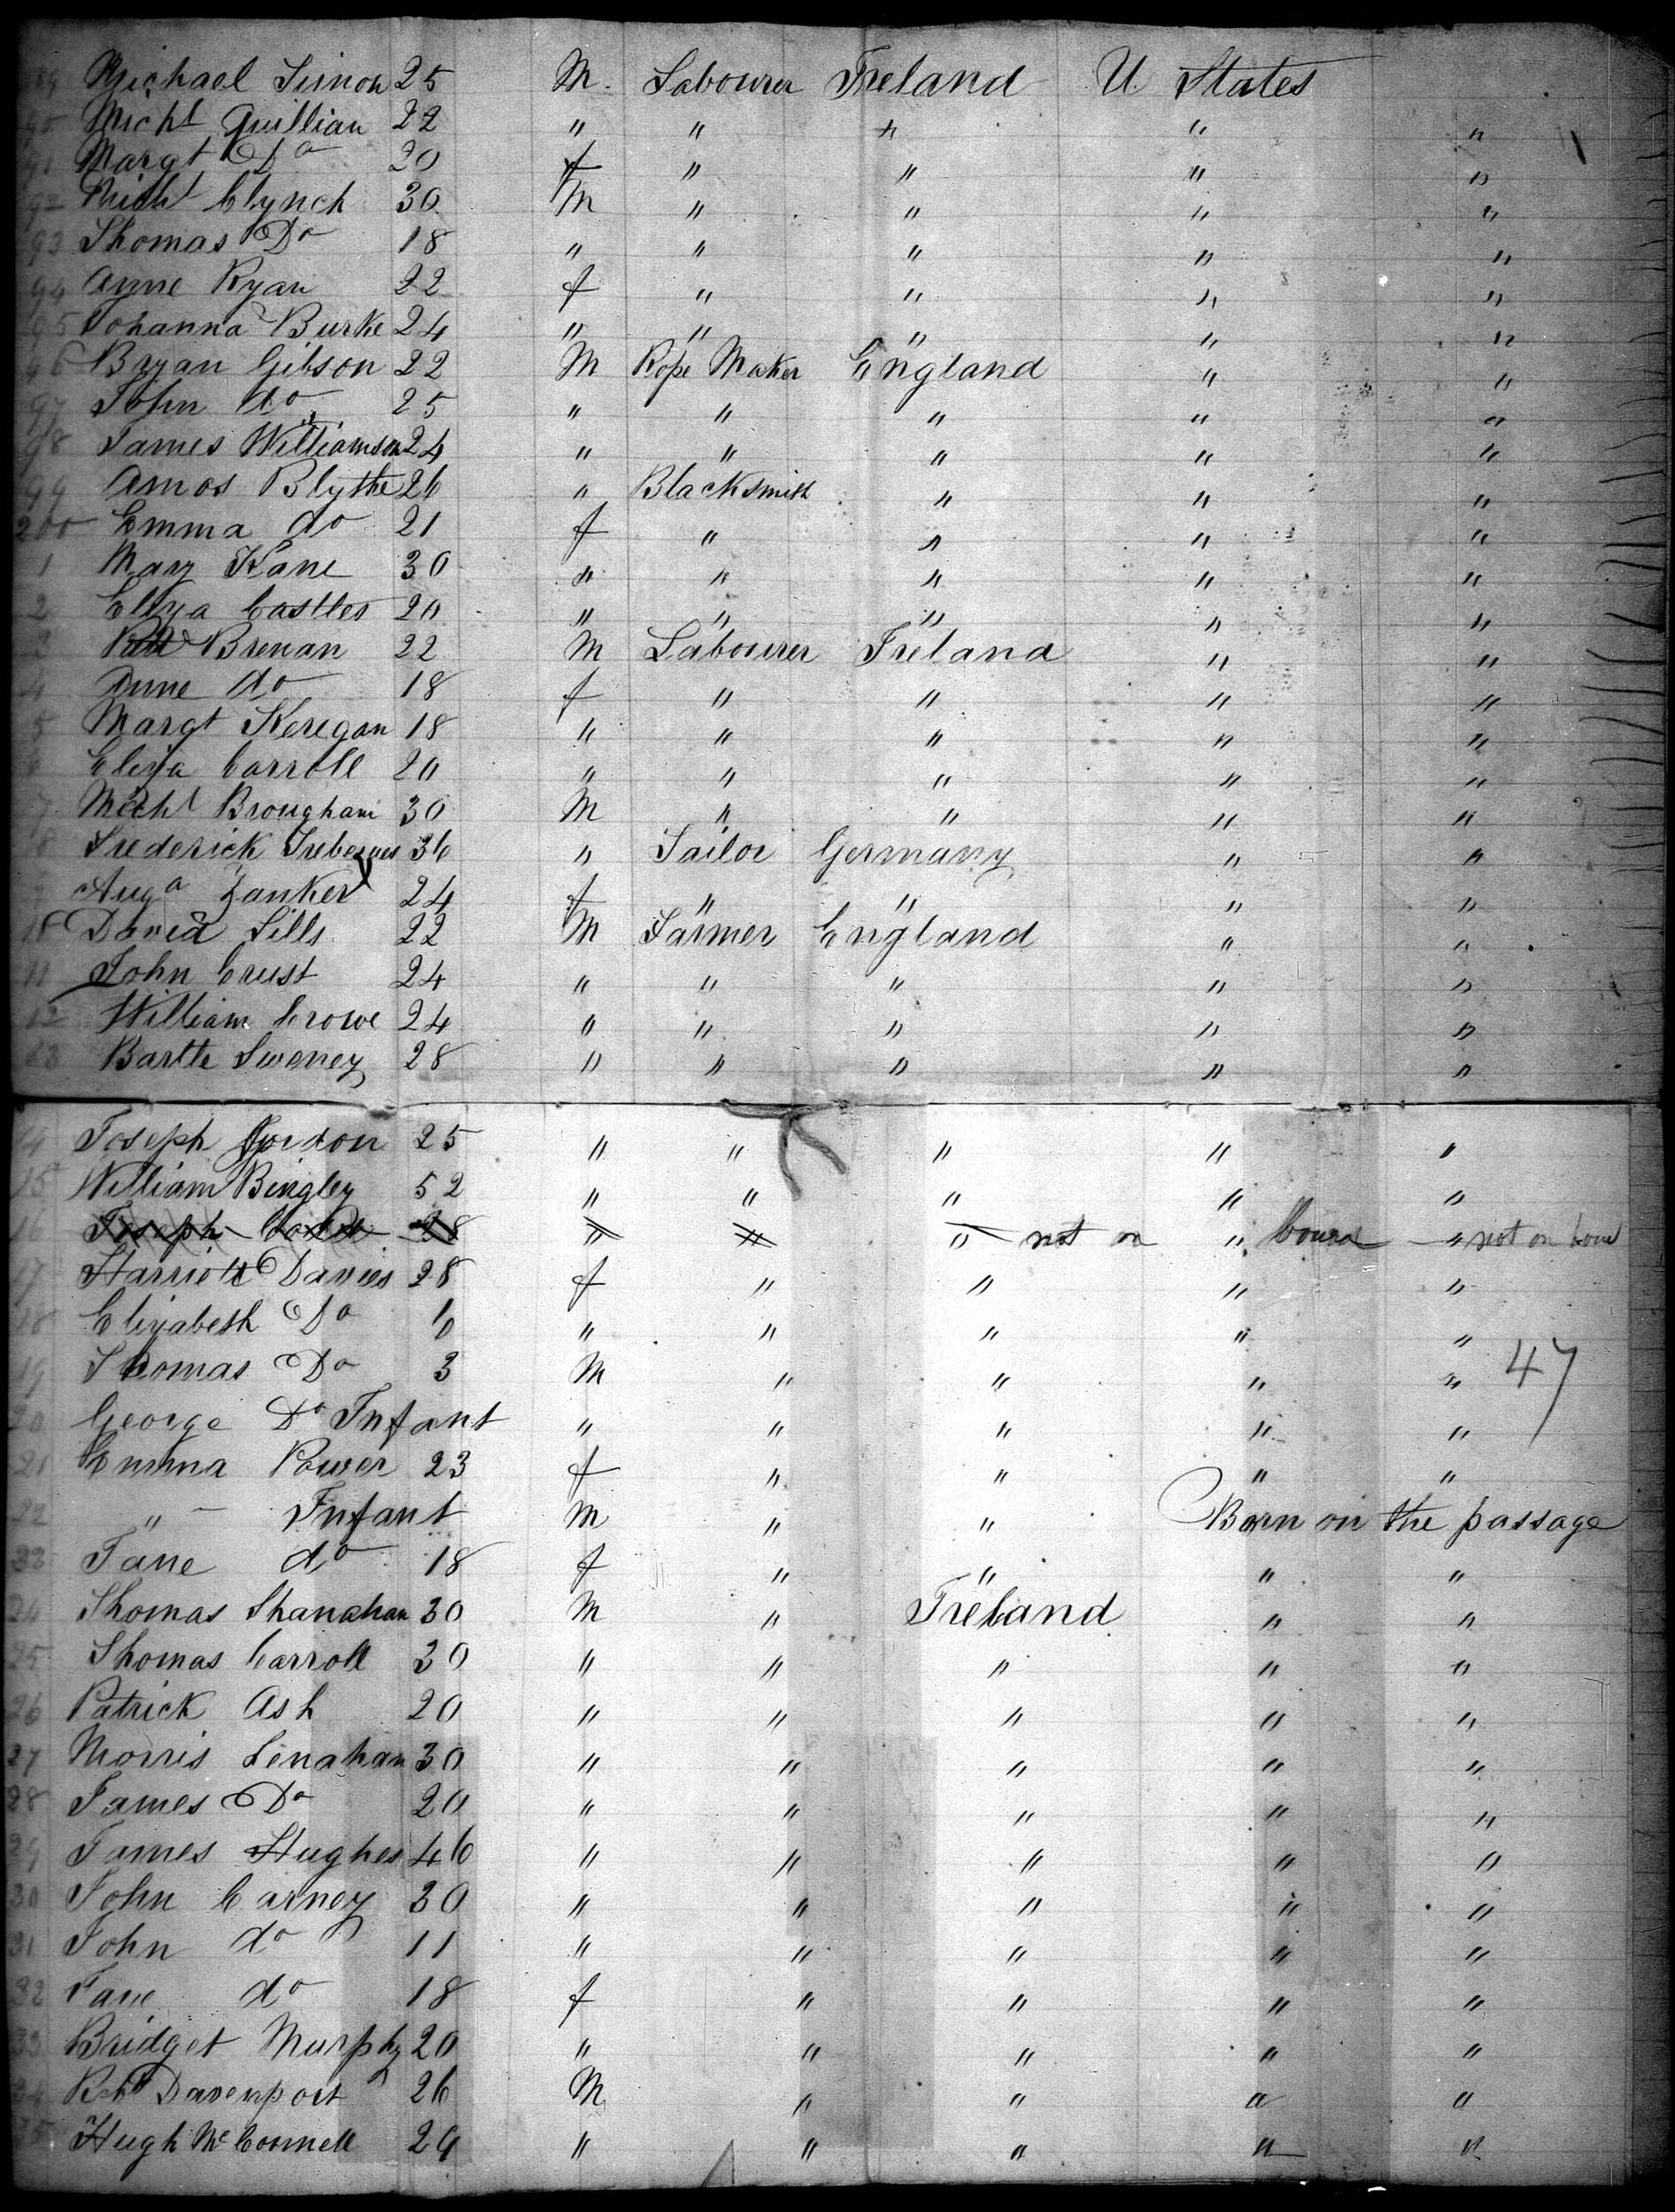 89 Michael Simon 25 M. Labourer Ireland U. States
90 Michl Quillian 22 " " " " "
91 Margt Do 20 f " " " "
92 Michl Clynch 30 M " " " "
93 Thomas Do 18 " " " " "
94 Anne Ryan 22 f " " " "
95 Johanna Burke 24 " " " " "
96 Bryan Gibson 22 M Rope Maker England " "
97 John do 25 " " " " "
98 James Williamson 24 " " " " "
99 Amos Blythe 26 " Blacksmith " " "
200 Emma do 21 f " " " "
1 Mary Kane 30 " " " " "
2 Eliza Castles 20 " " " " "
3 Patt Brenan 22 M Labourer Ireland " "
4 Anne do 18 f " " " "
5 Margt Keregan 18 " " " " "
6 Eliza Carroll 20 " " " " "
7 Michl Brougham 30 M " " " "
8 Frederick 36 " Tailor Germany " "
9 Auga Zanker 24 f " " " "
10 David Sills 22 M Farmer England " "
11 John Crust 24 " " " " "
12 William Crowe 24 " " " " "
13 Bartle Sweney 28 " " " " "
14 Joseph Gordon 25 " " " " "
15 William Bingley 52 " " " " "
16 Joseph 28 " " " not on " board " not on board
17 Harriott Davies 28 f " " " "
18 Elizabeth Do 6 " " " " "
19 Thomas Do 3 M " " " " 47
20 George Do Infant " " " " "
21 Emma Power 23 f " " " "
22 " - Infant M " " Born on the passage
23 Jane do 18 f " " " "
24 Thomas Shanahan 30 M " Ireland " "
25 Thomas Carroll 30 " " " " "
26 Patrick Ash 20 " " " " "
27 Morris Lenahan 30 " " " " "
28 James Do 20 " " " " "
29 James Hughes 46 " " " " "
30 John Carney 30 " " " " "
31 John do 11 " " " " "
32 Jane do 18 f " " " "
33 Bridget Murphy 20 " " " " "
34 Robt Davenport 26 M " " " "
35 Hugh McConnell 24 " " " " "